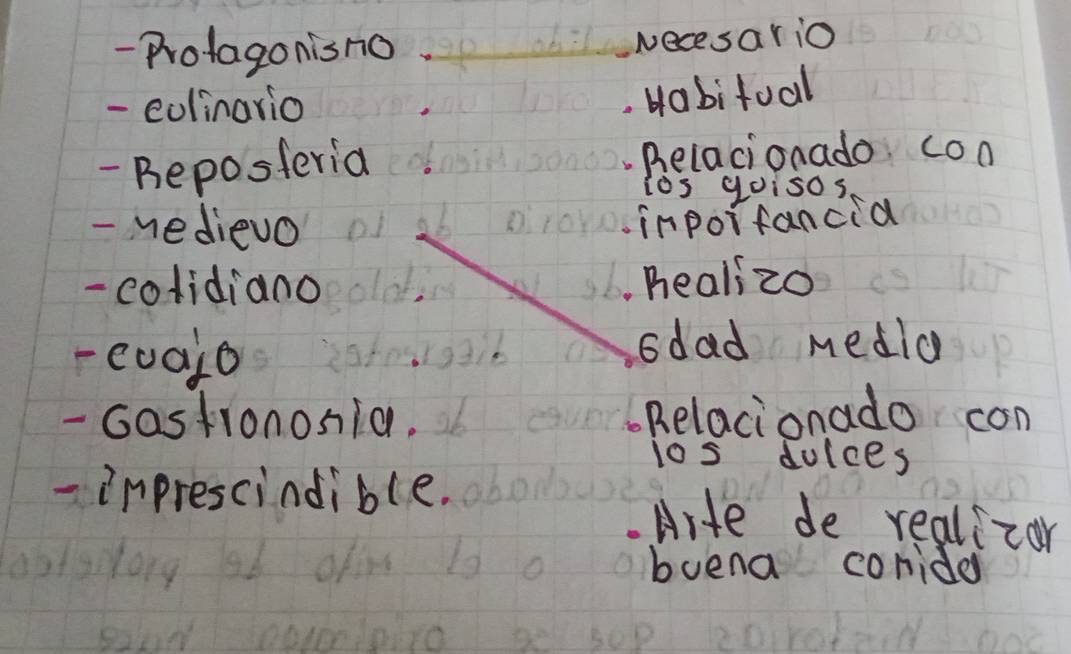 - Protagonismo . . Necesario
- culinario . . Habitual
- Reposteria . . Relacionado con
los guisos
- Medievo . . importancia
- cotidiano . . Realizo
- cuajo . . Edad Media
- Gastronomia . . Relacionado con
los dulces
- imprescindible .
. Arte de realizar
buena comida